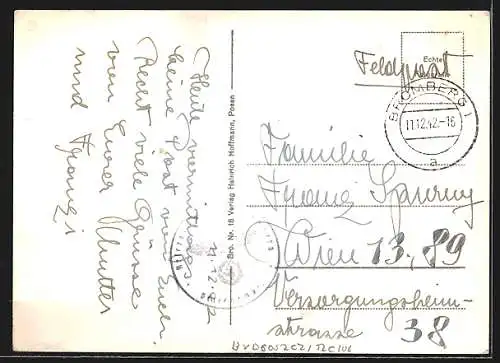 Heute vormittags
keine Post von Euch.
Recht viele Grüsse
von Eurer Mutter
und Franzi
Bro. Nr. 18 Verlag Heinrich Hoffmann, Posen
Echte
Feldpost
BROMBERG 1
11.12.42.-16
a
Familie
Franz
Wien 13., 89
Versorgungsheim-
strasse 38